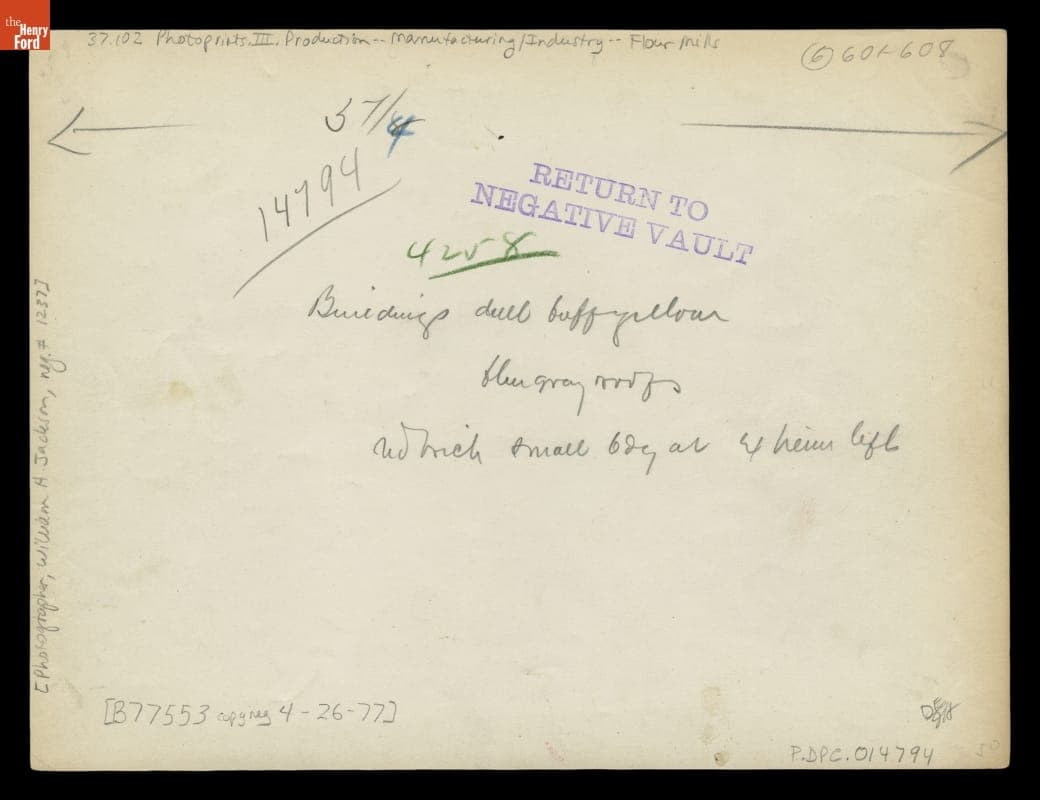 the Henry Ford
37.102 Photoprints.III. Production--Manufacturing/Industry--Flour Mills
6 601-608
37/4
14794
RETURN TO
NEGATIVE VAULT
4258
Buildings dull buff yellow
blue gray roofs
red brick small bdg at extreme left
[Photographer, William H. Jackson, neg.# 1237]
[B77553 copy neg 4-26-77]
P.DPC.014794